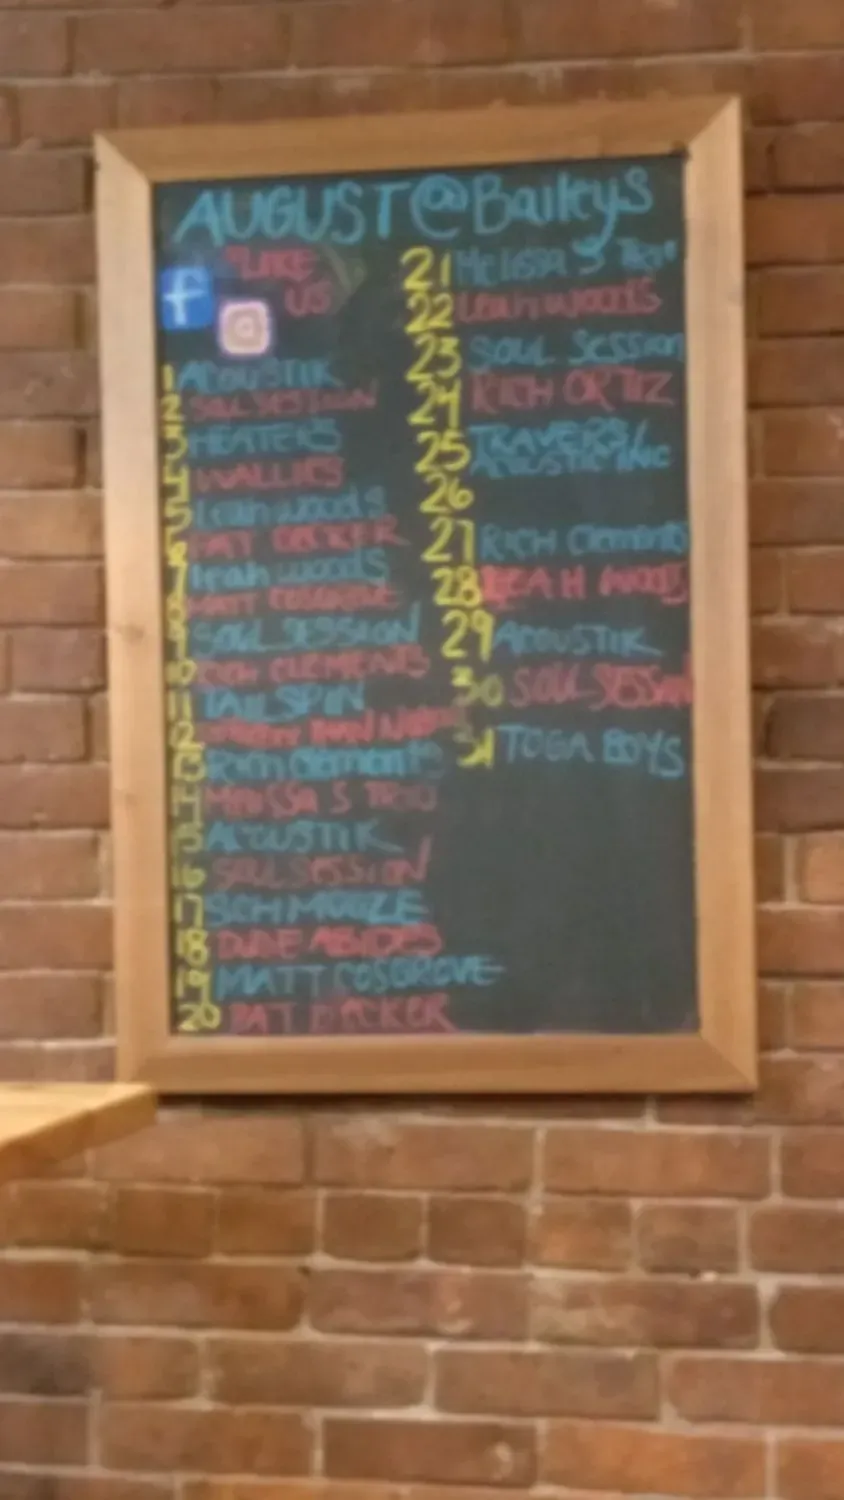 AUGUST @ Baileys
"LIKE
US
1 ACOUSTIK
2 SOUL SESSION
3 HEATERS
4 WALLIES
5 Leah woods
6 PAT DECKER
7 leah woods
8 MATT COSGROVE
9 SOUL SESSION
10 RICH CLEMENTS
11 TAILSPIN
12
13 Rich Clements
14 Melissa S TRIO
15 ACOUSTIK
16 SOUL SESSION
17 SCHMOOZE
18 DUDE ABIDES
19 MATT COSGROVE
20 PAT DECKER
21 Melissa S Trio
22 Leah woods
23 SOUL SESSION
24 RICH ORTIZ
25 TRAVERS/
ACOUSTIC INC
26
27 RICH Clements
28 LEAH WOODS
29 ACOUSTIK
30 SOUL SESSION
31 TOGA BOYS